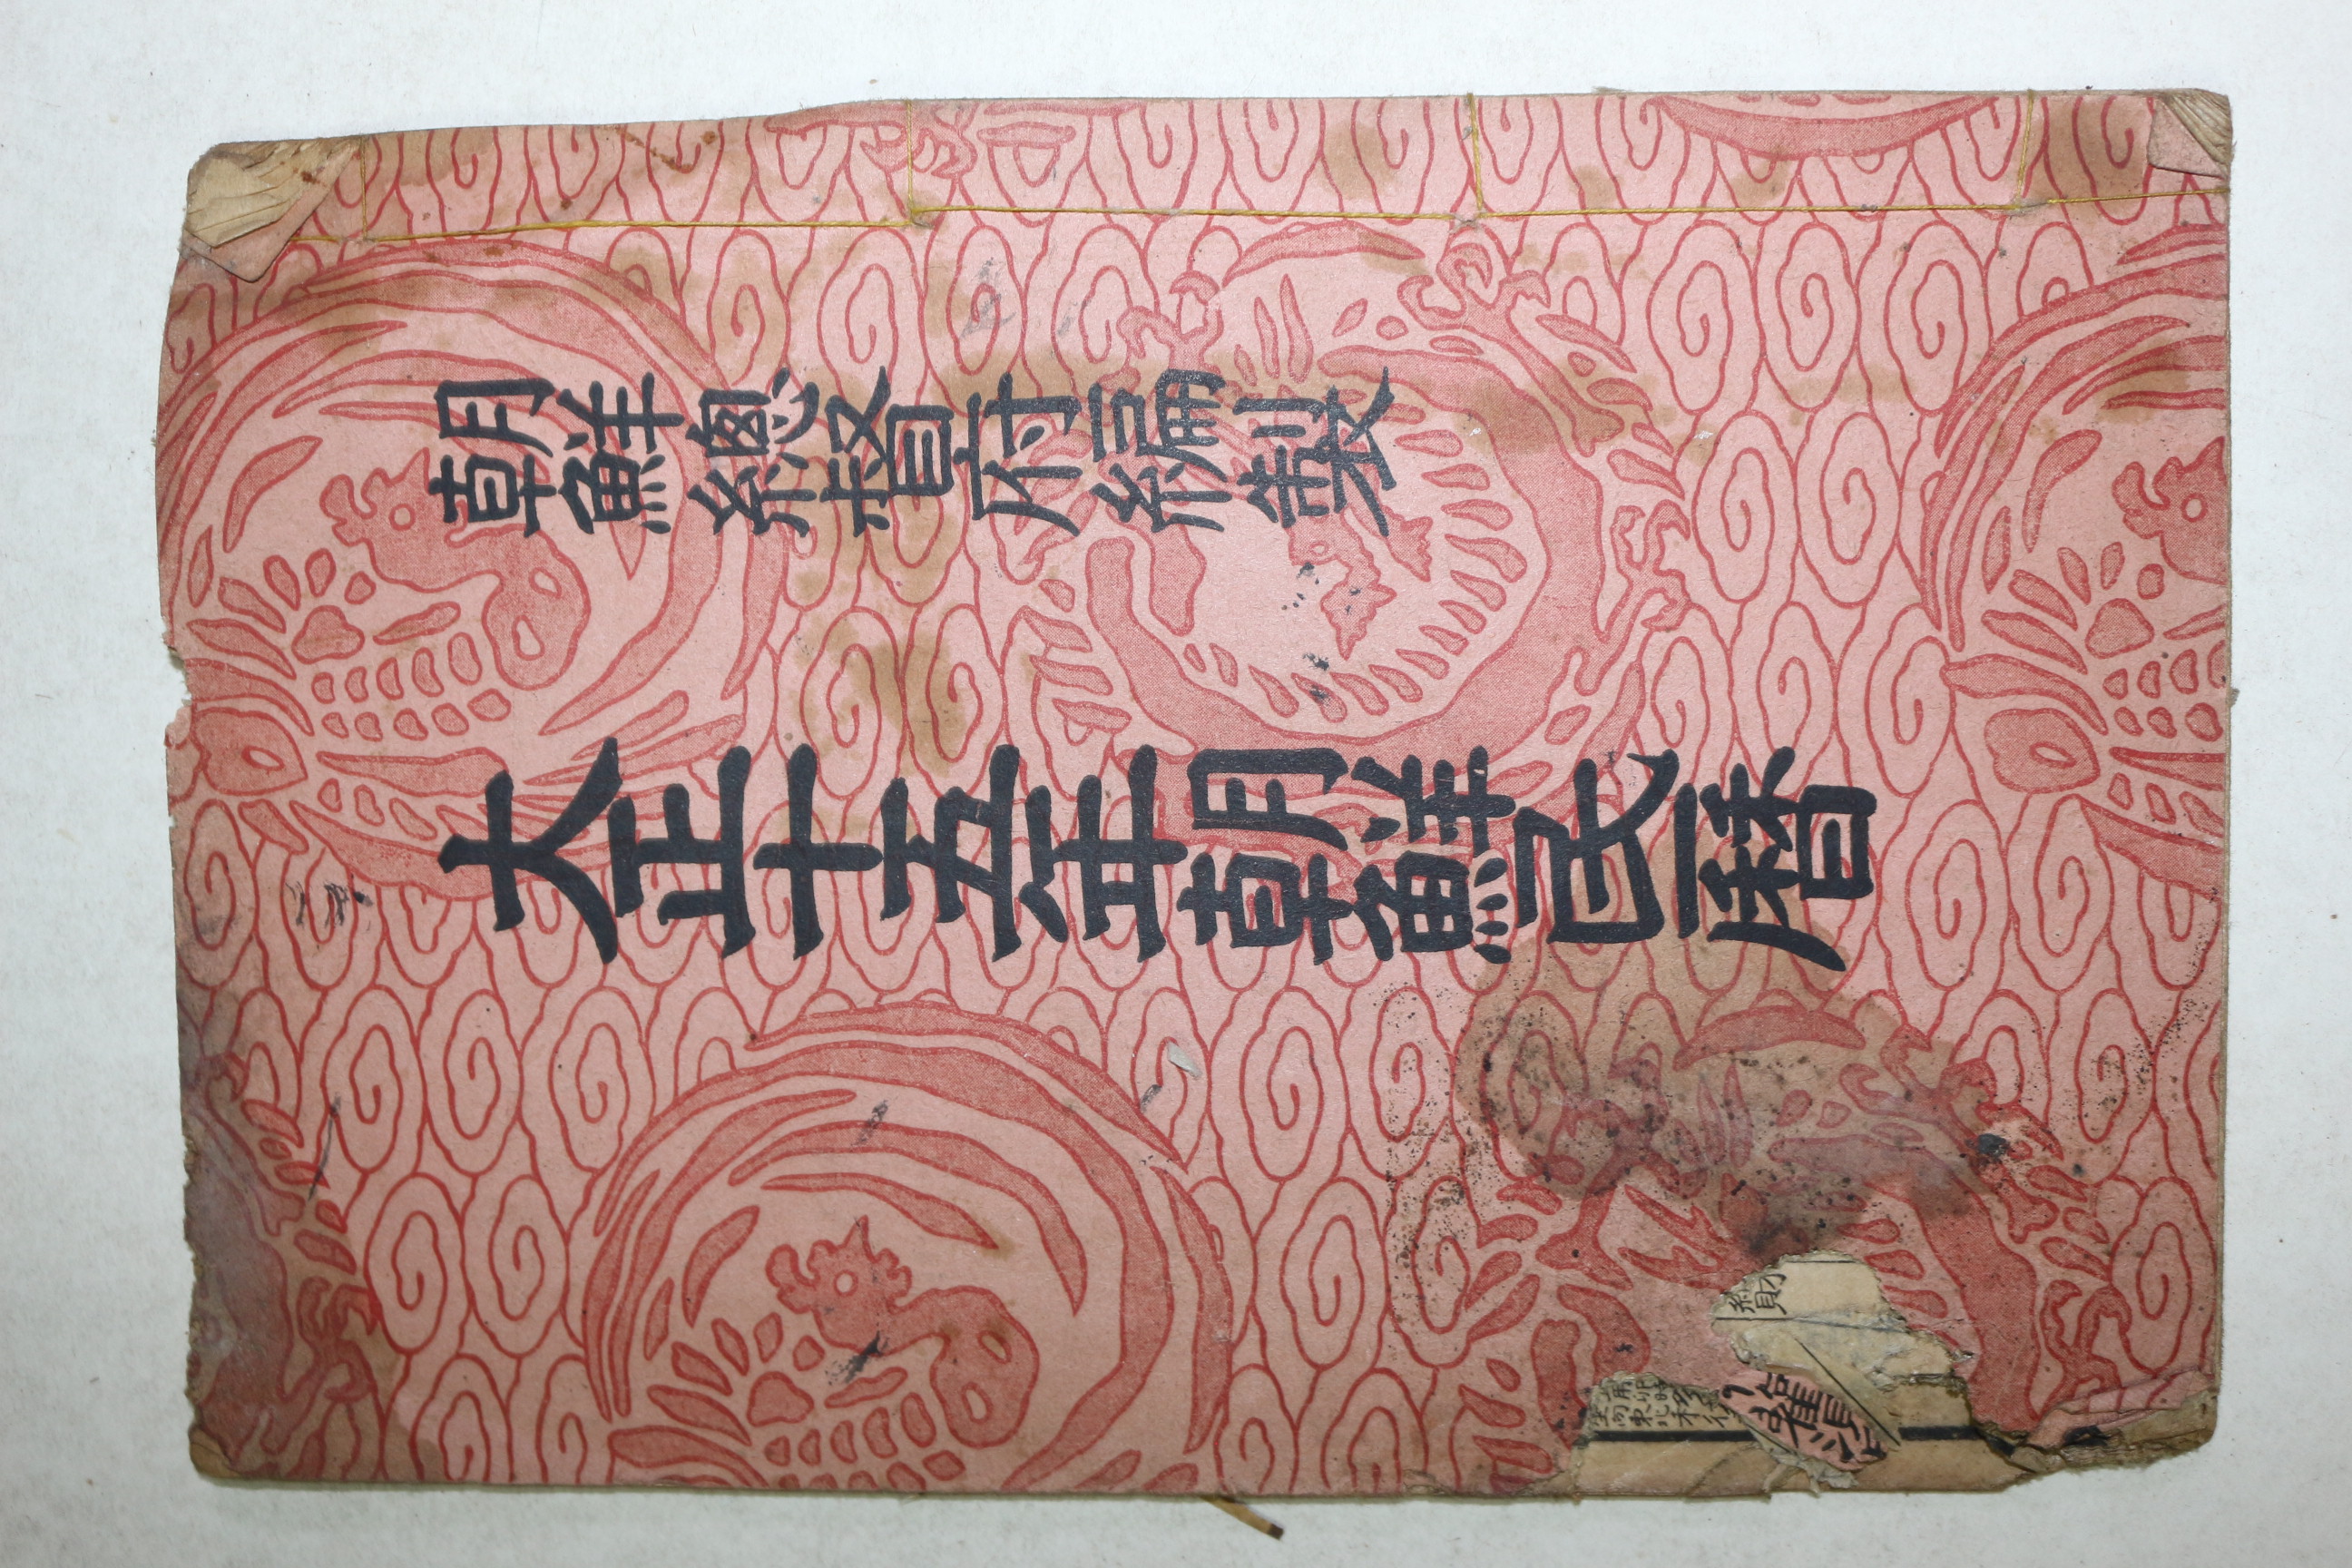 朝鮮總督府編製
大正十五年朝鮮民曆